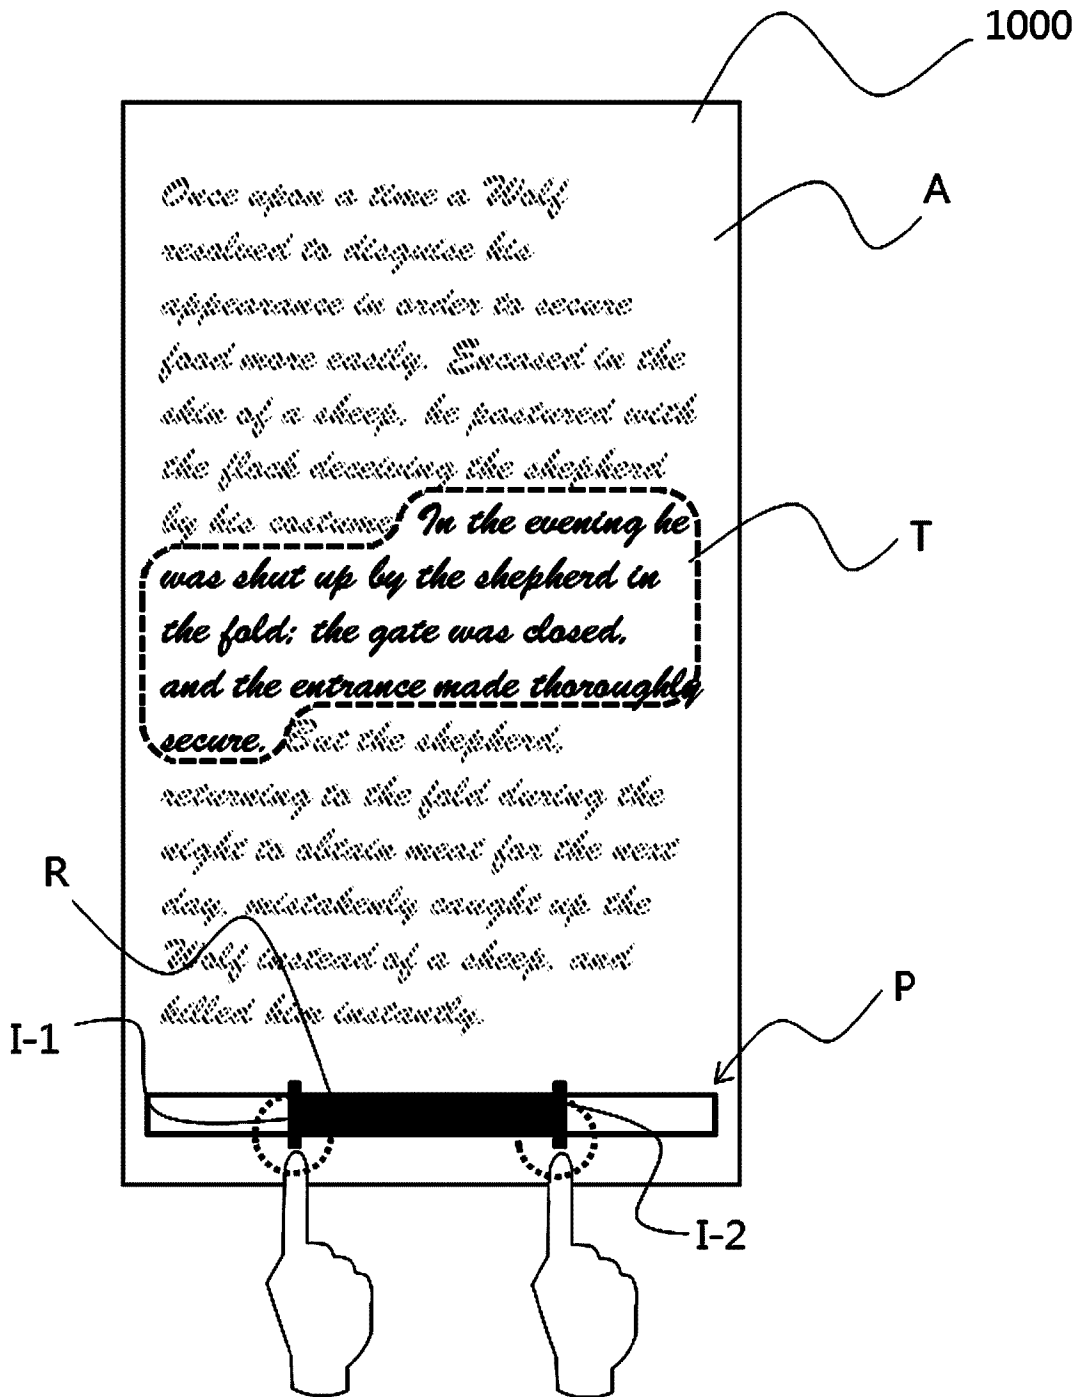 1000
A
Once upon a time a Wolf
resolved to disguise his
appearance in order to secure
food more easily. Encased in the
skin of a sheep, he pastured with
the flock deceiving the shepherd
by his costume. In the evening he
was shut up by the shepherd in
the fold; the gate was closed,
and the entrance made thoroughly
secure. But the shepherd,
returning to the fold during the
night to obtain meat for the next
day, mistakenly caught up the
Wolf instead of a sheep, and
killed him instantly.
T
R
P
I-1
I-2